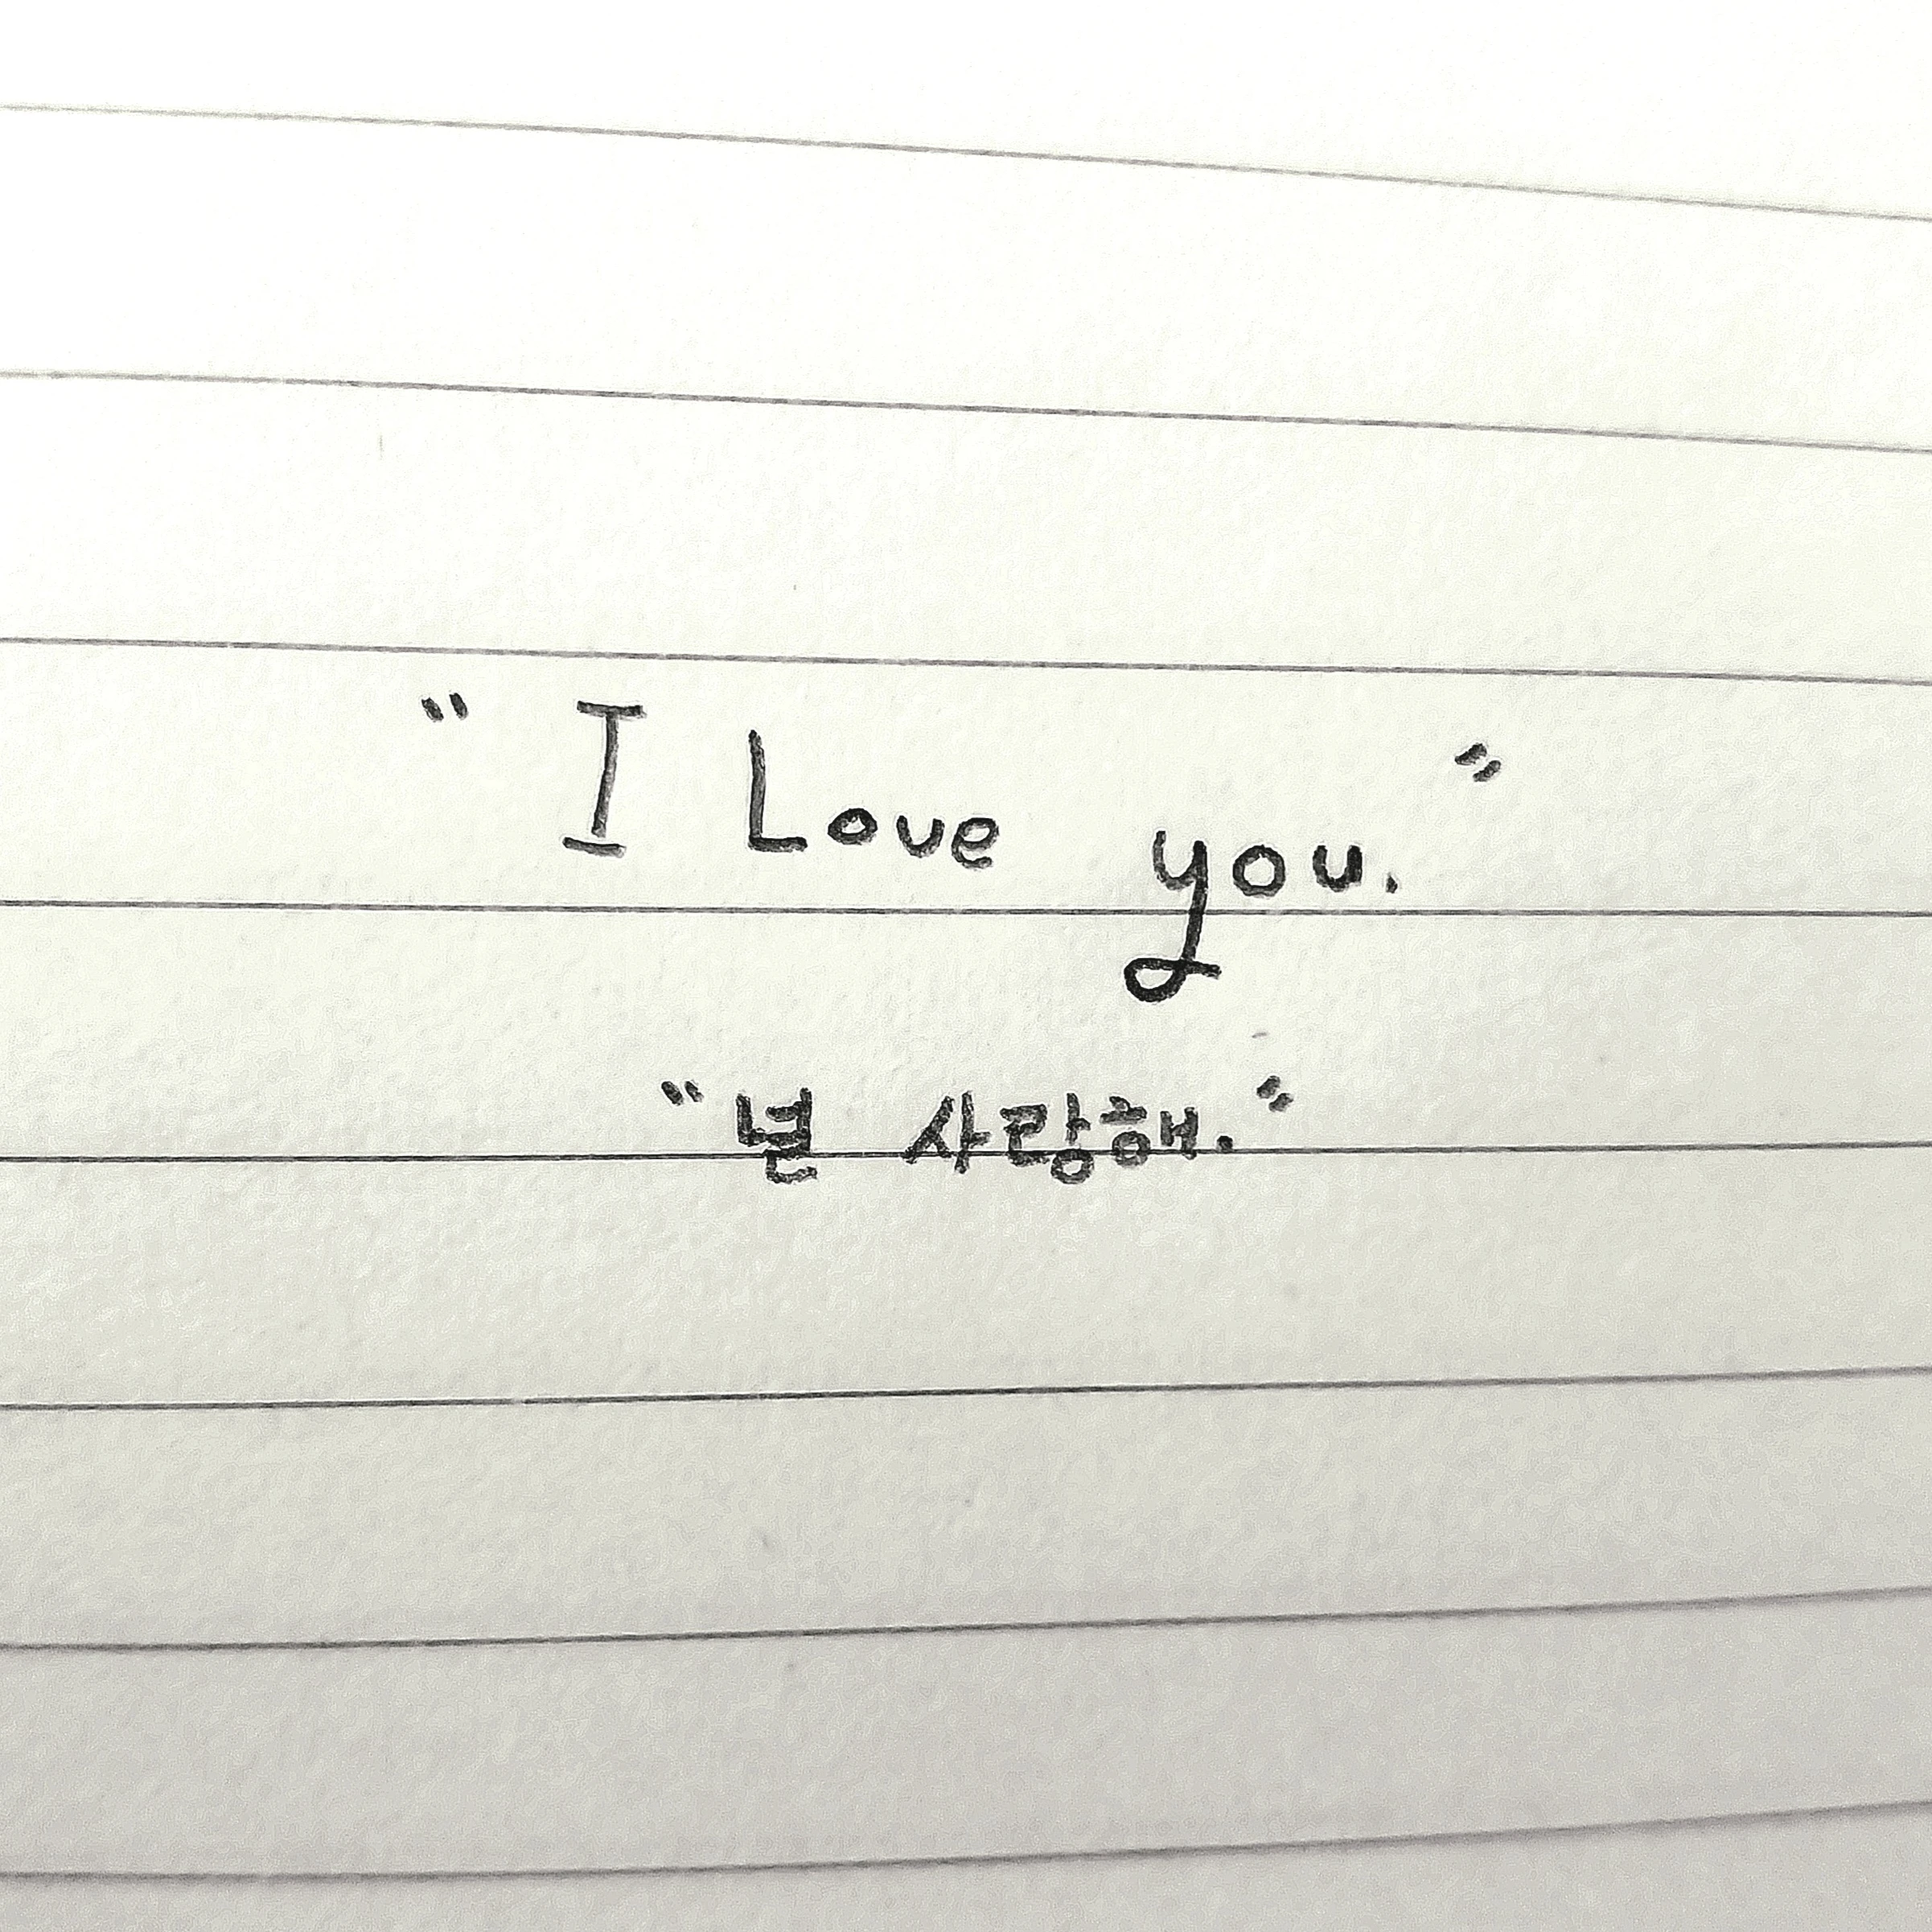 " I Love you. "
"널 사랑해."